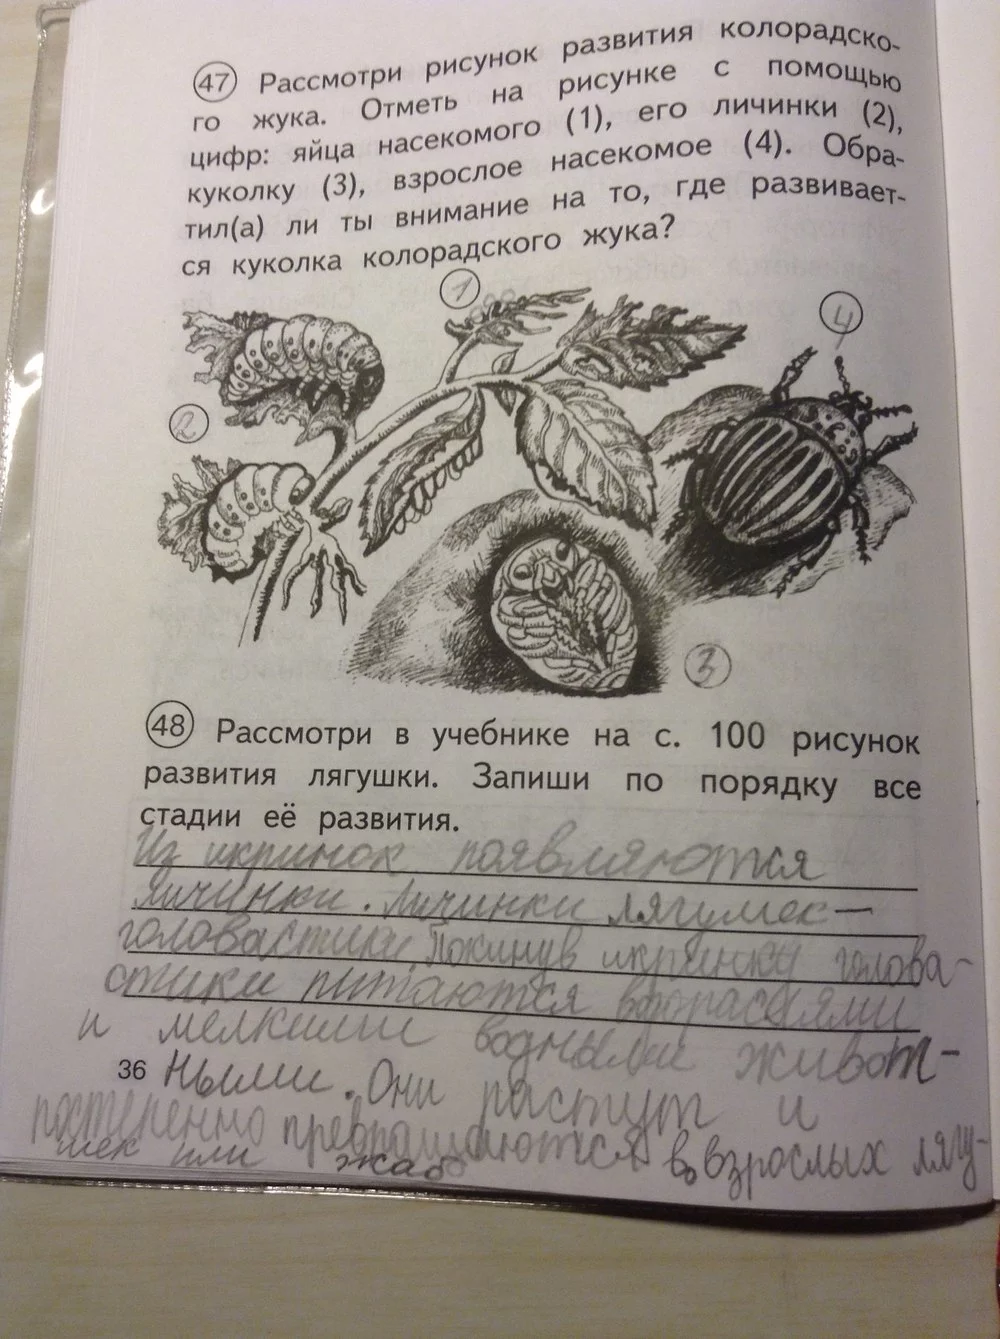 47 Рассмотри рисунок развития колорадско-
го жука. Отметь на рисунке с помощью
цифр: яйца насекомого (1), его личинки (2),
куколку (3), взрослое насекомое (4). Обра-
тил(а) ли ты внимание на то, где развивает-
ся куколка колорадского жука?
1
4
2
3
48 Рассмотри в учебнике на с. 100 рисунок
развития лягушки. Запиши по порядку все
стадии её развития.
Из икринок появляются
личинки. Личинки лягушек —
головастики Покинув икринку голова-
стики питаются
и мелкими водными живот-
36 ными. Они растут и
постепенно превращаются во взрослых лягу-
шек или жаб